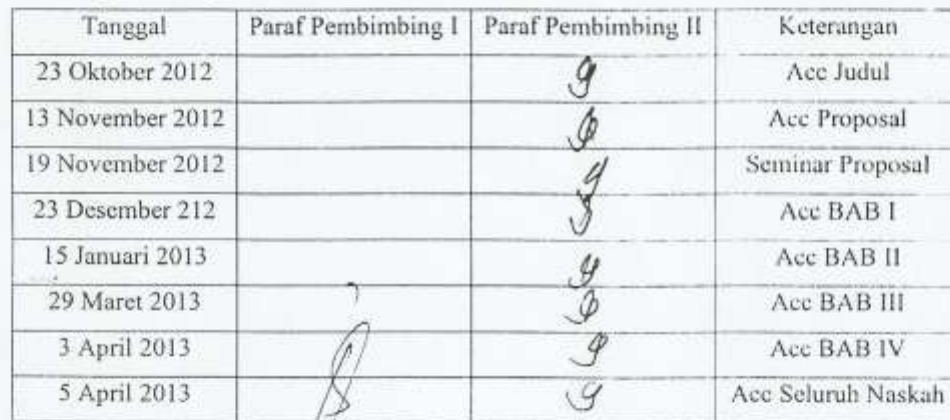 Tanggal Paraf Pembimbing I Paraf Pembimbing II Keterangan
23 Oktober 2012 Acc Judul
13 November 2012 Acc Proposal
19 November 2012 Seminar Proposal
23 Desember 212 Acc BAB I
15 Januari 2013 Acc BAB II
29 Maret 2013 Acc BAB III
3 April 2013 Acc BAB IV
5 April 2013 Acc Seluruh Naskah